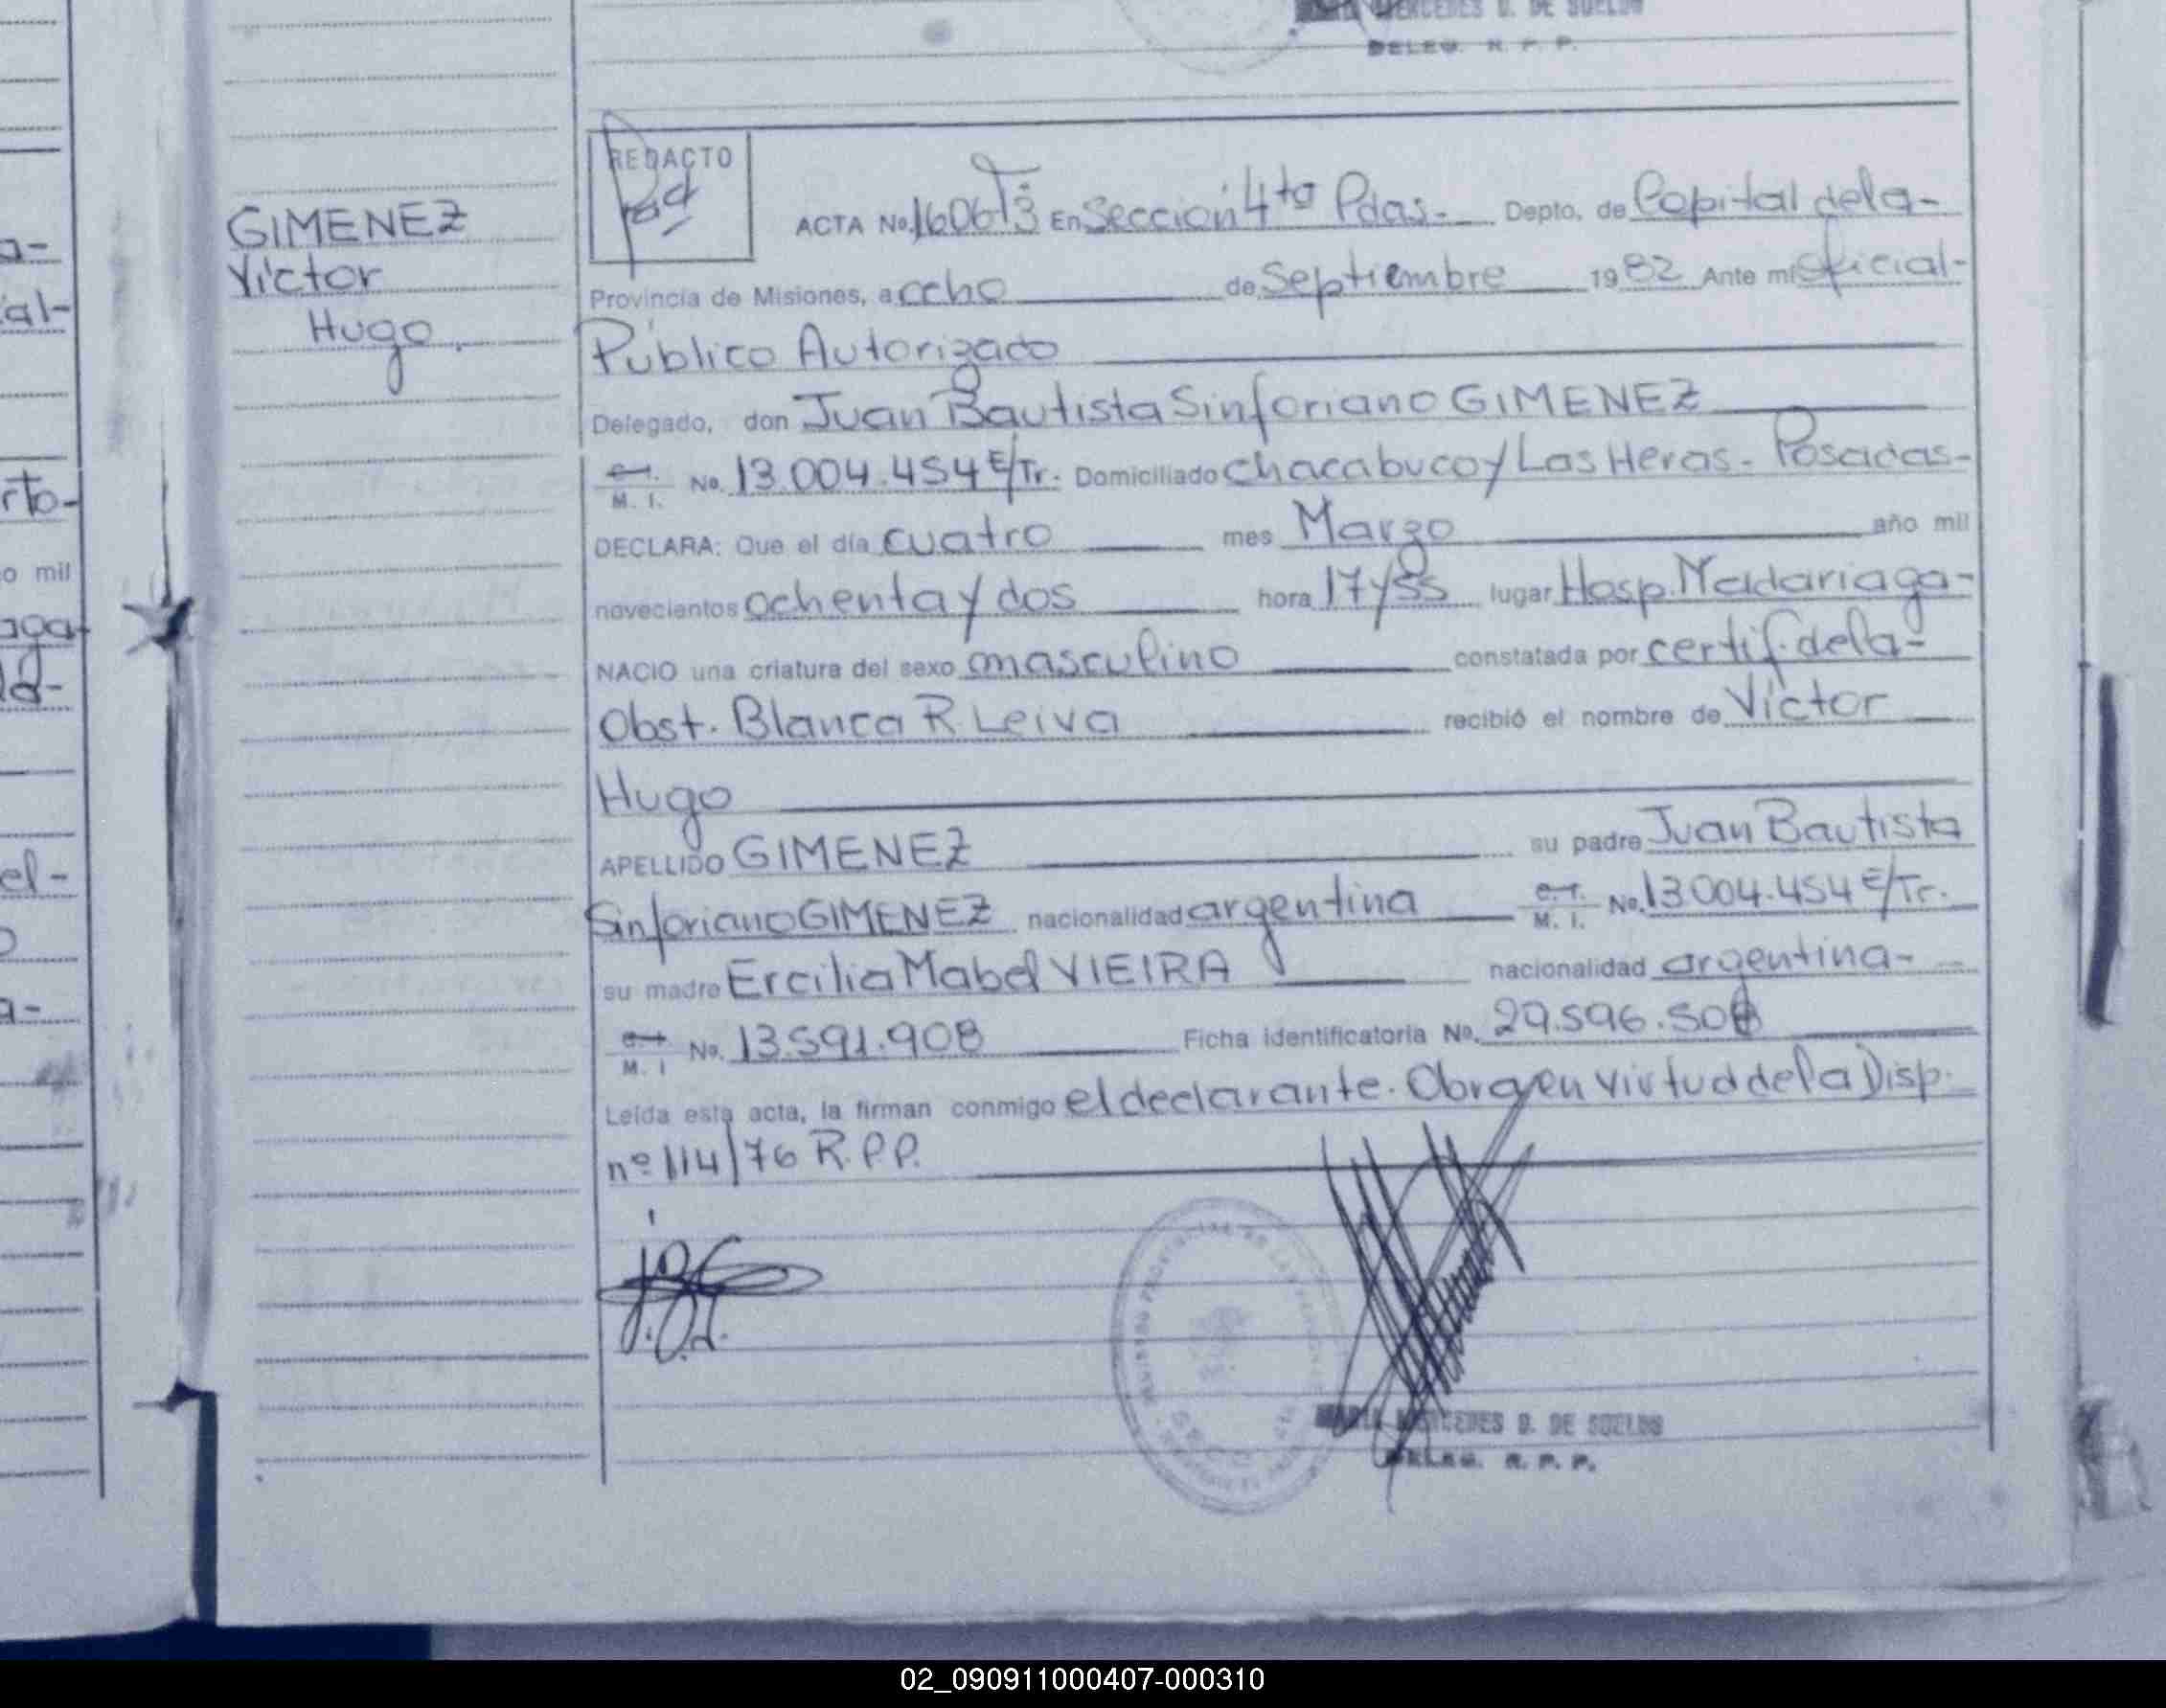 MERCEDES D. DE SUELDO
DELEG. R. P. P.
a-
al-
rto-
o mil
aga
la-
el-
o
a-
GIMENEZ
Víctor
Hugo.
REDACTO
ACTA No. 1606 T3 En Sección 4ta Pdas.- Depto. de Capital de la-
Provincia de Misiones, a ocho de Septiembre 1982 Ante mi Oficial-
Público Autorizado
Delegado, don Juan Bautista Sinforiano GIMENEZ
M. I. No. 13.004.454 E/Tr. Domiciliado Chacabuco y Las Heras - Posadas-
DECLARA: Que el día cuatro mes Marzo año mil
novecientos ochenta y dos hora 17 y 55 lugar Hosp. Madariaga-
NACIO una criatura del sexo masculino constatada por certif. de la-
Obst. Blanca R. Leiva recibió el nombre de Víctor
Hugo
APELLIDO GIMENEZ su padre Juan Bautista
Sinforiano GIMENEZ nacionalidad argentina M. I. No. 13.004.454 E/Tr.
su madre Ercilia Mabel VIEIRA nacionalidad argentina-
M. I No. 13.591.908 Ficha identificatoria No. 29.596.508
Leída esta acta, la firman conmigo el declarante. Obra en virtud de la Disp.
nº 114/76 R.P.P.
MARIA MERCEDES D. DE SUELDO
DELEG. R. P. P.
02_090911000407-000310